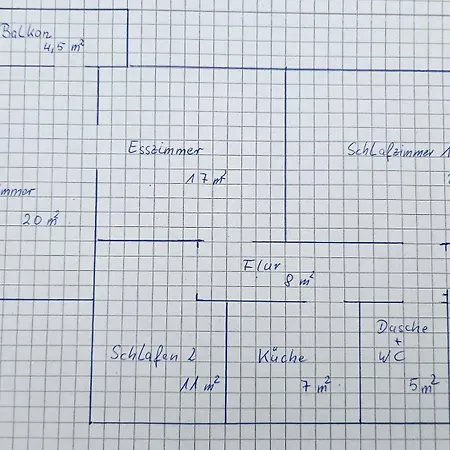 Balkon
4,5 m²
Esszimmer
17 m²
Schlafzimmer 1
mmer
20 m²
Flur
8 m²
Schlafen 2
11 m²
Küche
7 m²
Dusche
+
WC
5 m²